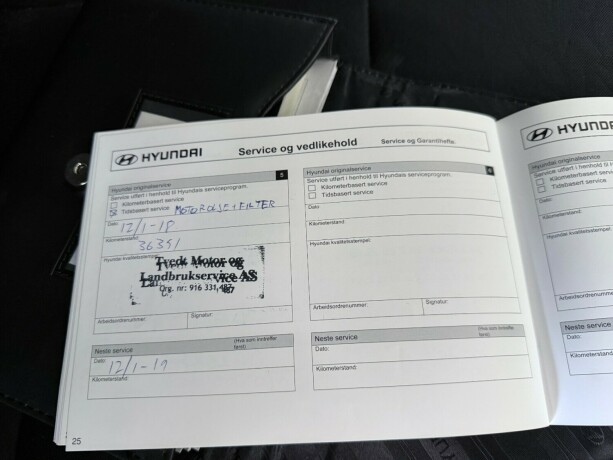 HYUNDAI Service og vedlikehold Service og Garantihefte.
Hyundai originalservice 5
Service utført i henhold til Hyundais serviceprogram.
Kilometerbasert service
Tidsbasert service MOTOROLJE + FILTER
Dato: 12/1-18
Kilometerstand: 36351
Hyundai kvalitetsstempel:
Tvedt Motor og
Landbrukservice AS
Org. nr: 916 331 487
Arbeidsordrenummer: Signatur:
Neste service (Hva som inntreffer først)
Dato: 12/1-19
Kilometerstand:
Hyundai originalservice 6
Service utført i henhold til Hyundais serviceprogram.
Kilometerbasert service
Tidsbasert service
Dato:
Kilometerstand:
Hyundai kvalitetsstempel:
Arbeidsordrenummer: Signatur:
Neste service (Hva som inntreffer først)
Dato:
Kilometerstand:
25
HYUNDAI
Hyundai originalservice
Service utført i henhold til
Kilometerbasert
Tidsbasert service
Dato:
Kilometerstand:
Hyundai kvalitetsstempel:
Arbeidsordrenummer:
Neste service
Dato:
Kilometerstand: